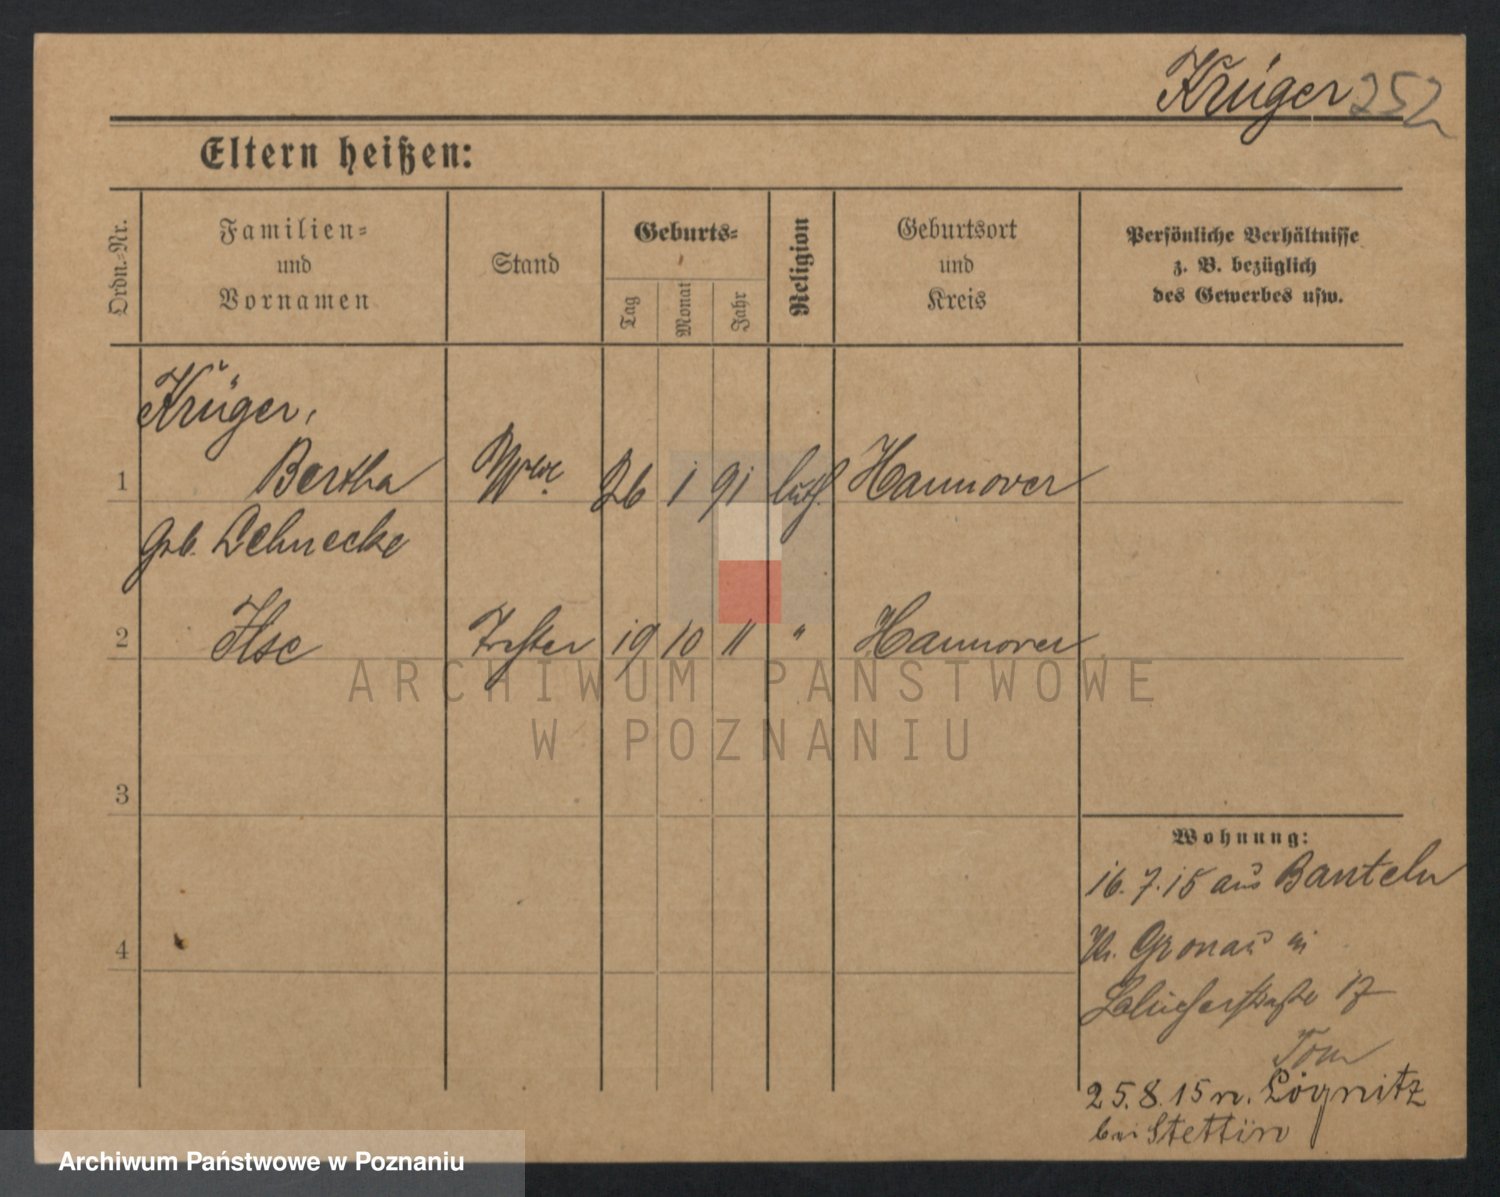 Krüger 252
Eltern heißen:
Ordn.-Nr.
Familien-
und
Vornamen
Stand
Geburts-
Tag
Monat
Jahr
Religion
Geburtsort
und
Kreis
Persönliche Verhältnisse
z. B. bezüglich
des Gewerbes usw.
Krüger,
1 Bertha Wwe. 26 1 91 luth. Hannover
geb. Lehnecke
2 Ilse Tochter 19 10 11 " Hannover
3
4
Wohnung:
16.7.15 aus Banteln
Kr. Gronau in
Blücherstraße 17
Tom
25.8.15 n. Löcknitz
bei Stettin
ARCHIWUM PAŃSTWOWE
W POZNANIU
Archiwum Państwowe w Poznaniu